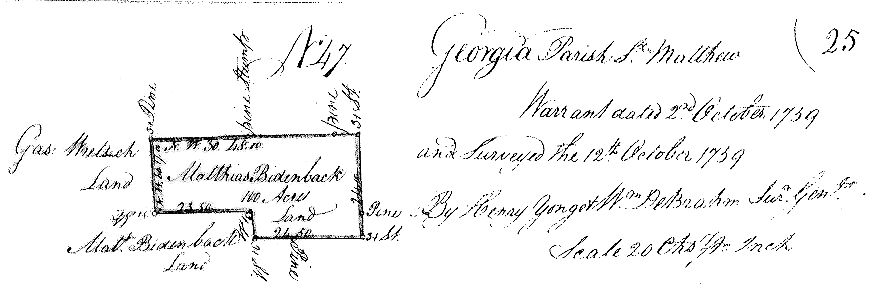 No. 47
Georgia Parish St. Matthew
25
Warrant dated 2nd October 1759
and Surveyed the 12th October 1759
By Henry Yonge & Wm DeBrahm Surs. Genl.
Scale 20 Chs. pr Inch
Pine
pine Stump
pine
31 St.
Gas. Land
N. W. 50 48.00
Matthias Bidenback
100 Acres
Land
23.50
24.50
Pine
31 St.
Matt. Bidenback
Land
Pine